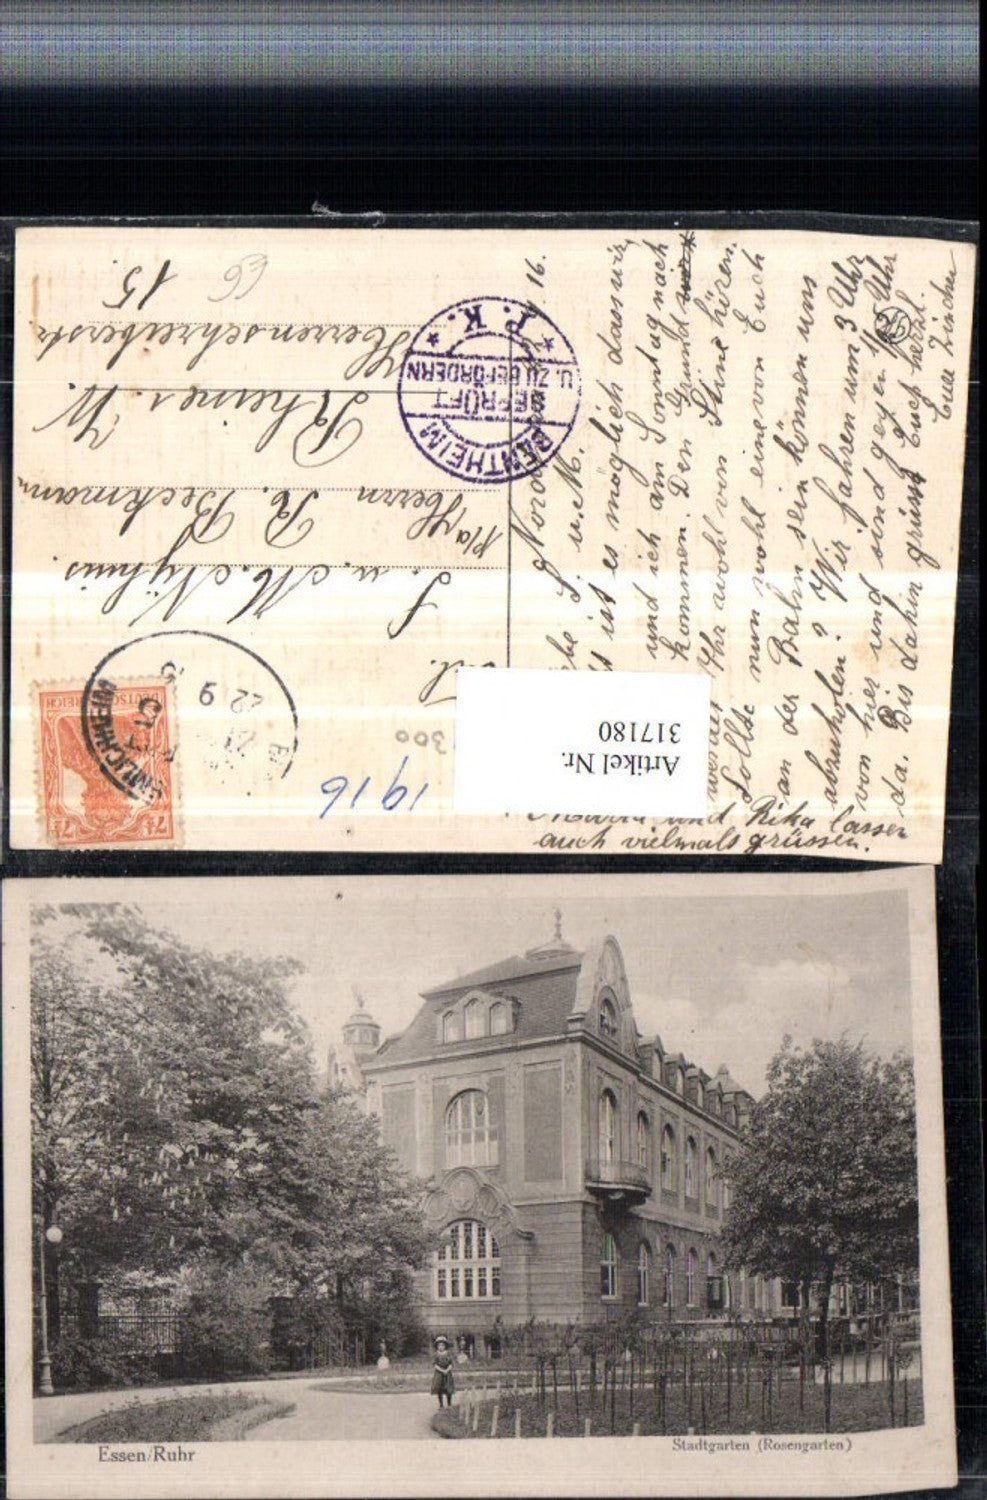 Nord 16.
L. u. M.
ist es möglich dass wir
und ich am Sonntag nach
kommen. Den Grund
Ihr wohl von Stine hören.
Sollte nun wohl eine von Euch
an der Bahn sein können uns
abzuholen? Wir fahren um 3 Uhr
von hier und sind gegen 11 Uhr
da. Bis dahin grüsst Euch herzl.
Eure
und Rika lassen
auch vielmals grüssen.
M. Nyhuis
Herrn R. Beckmann
Rheine i. W.
Herrenschreiberstr.
15.
BENTHEIM
GEPRÜFT
U. ZU BEFÖRDERN
* P. K. *
DEUTSCHES REICH
7½
22 9
1916
300
Artikel Nr.
317180
Essen/Ruhr
Stadtgarten (Rosengarten)